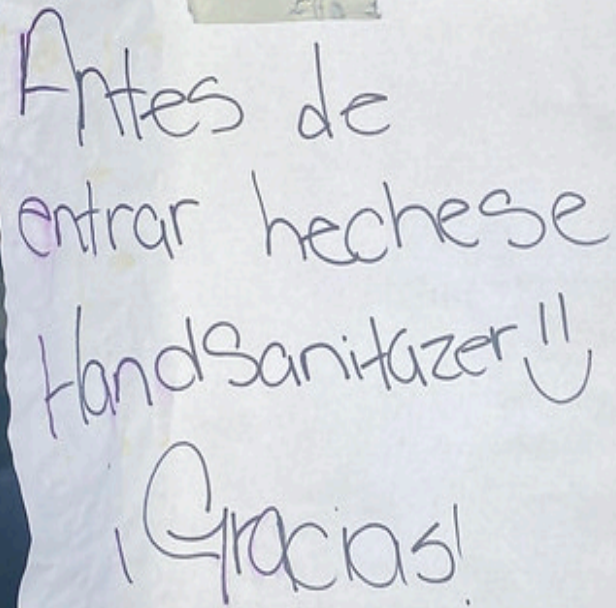 Antes de
entrar hechese
HandSanitazer!!
¡Gracias!